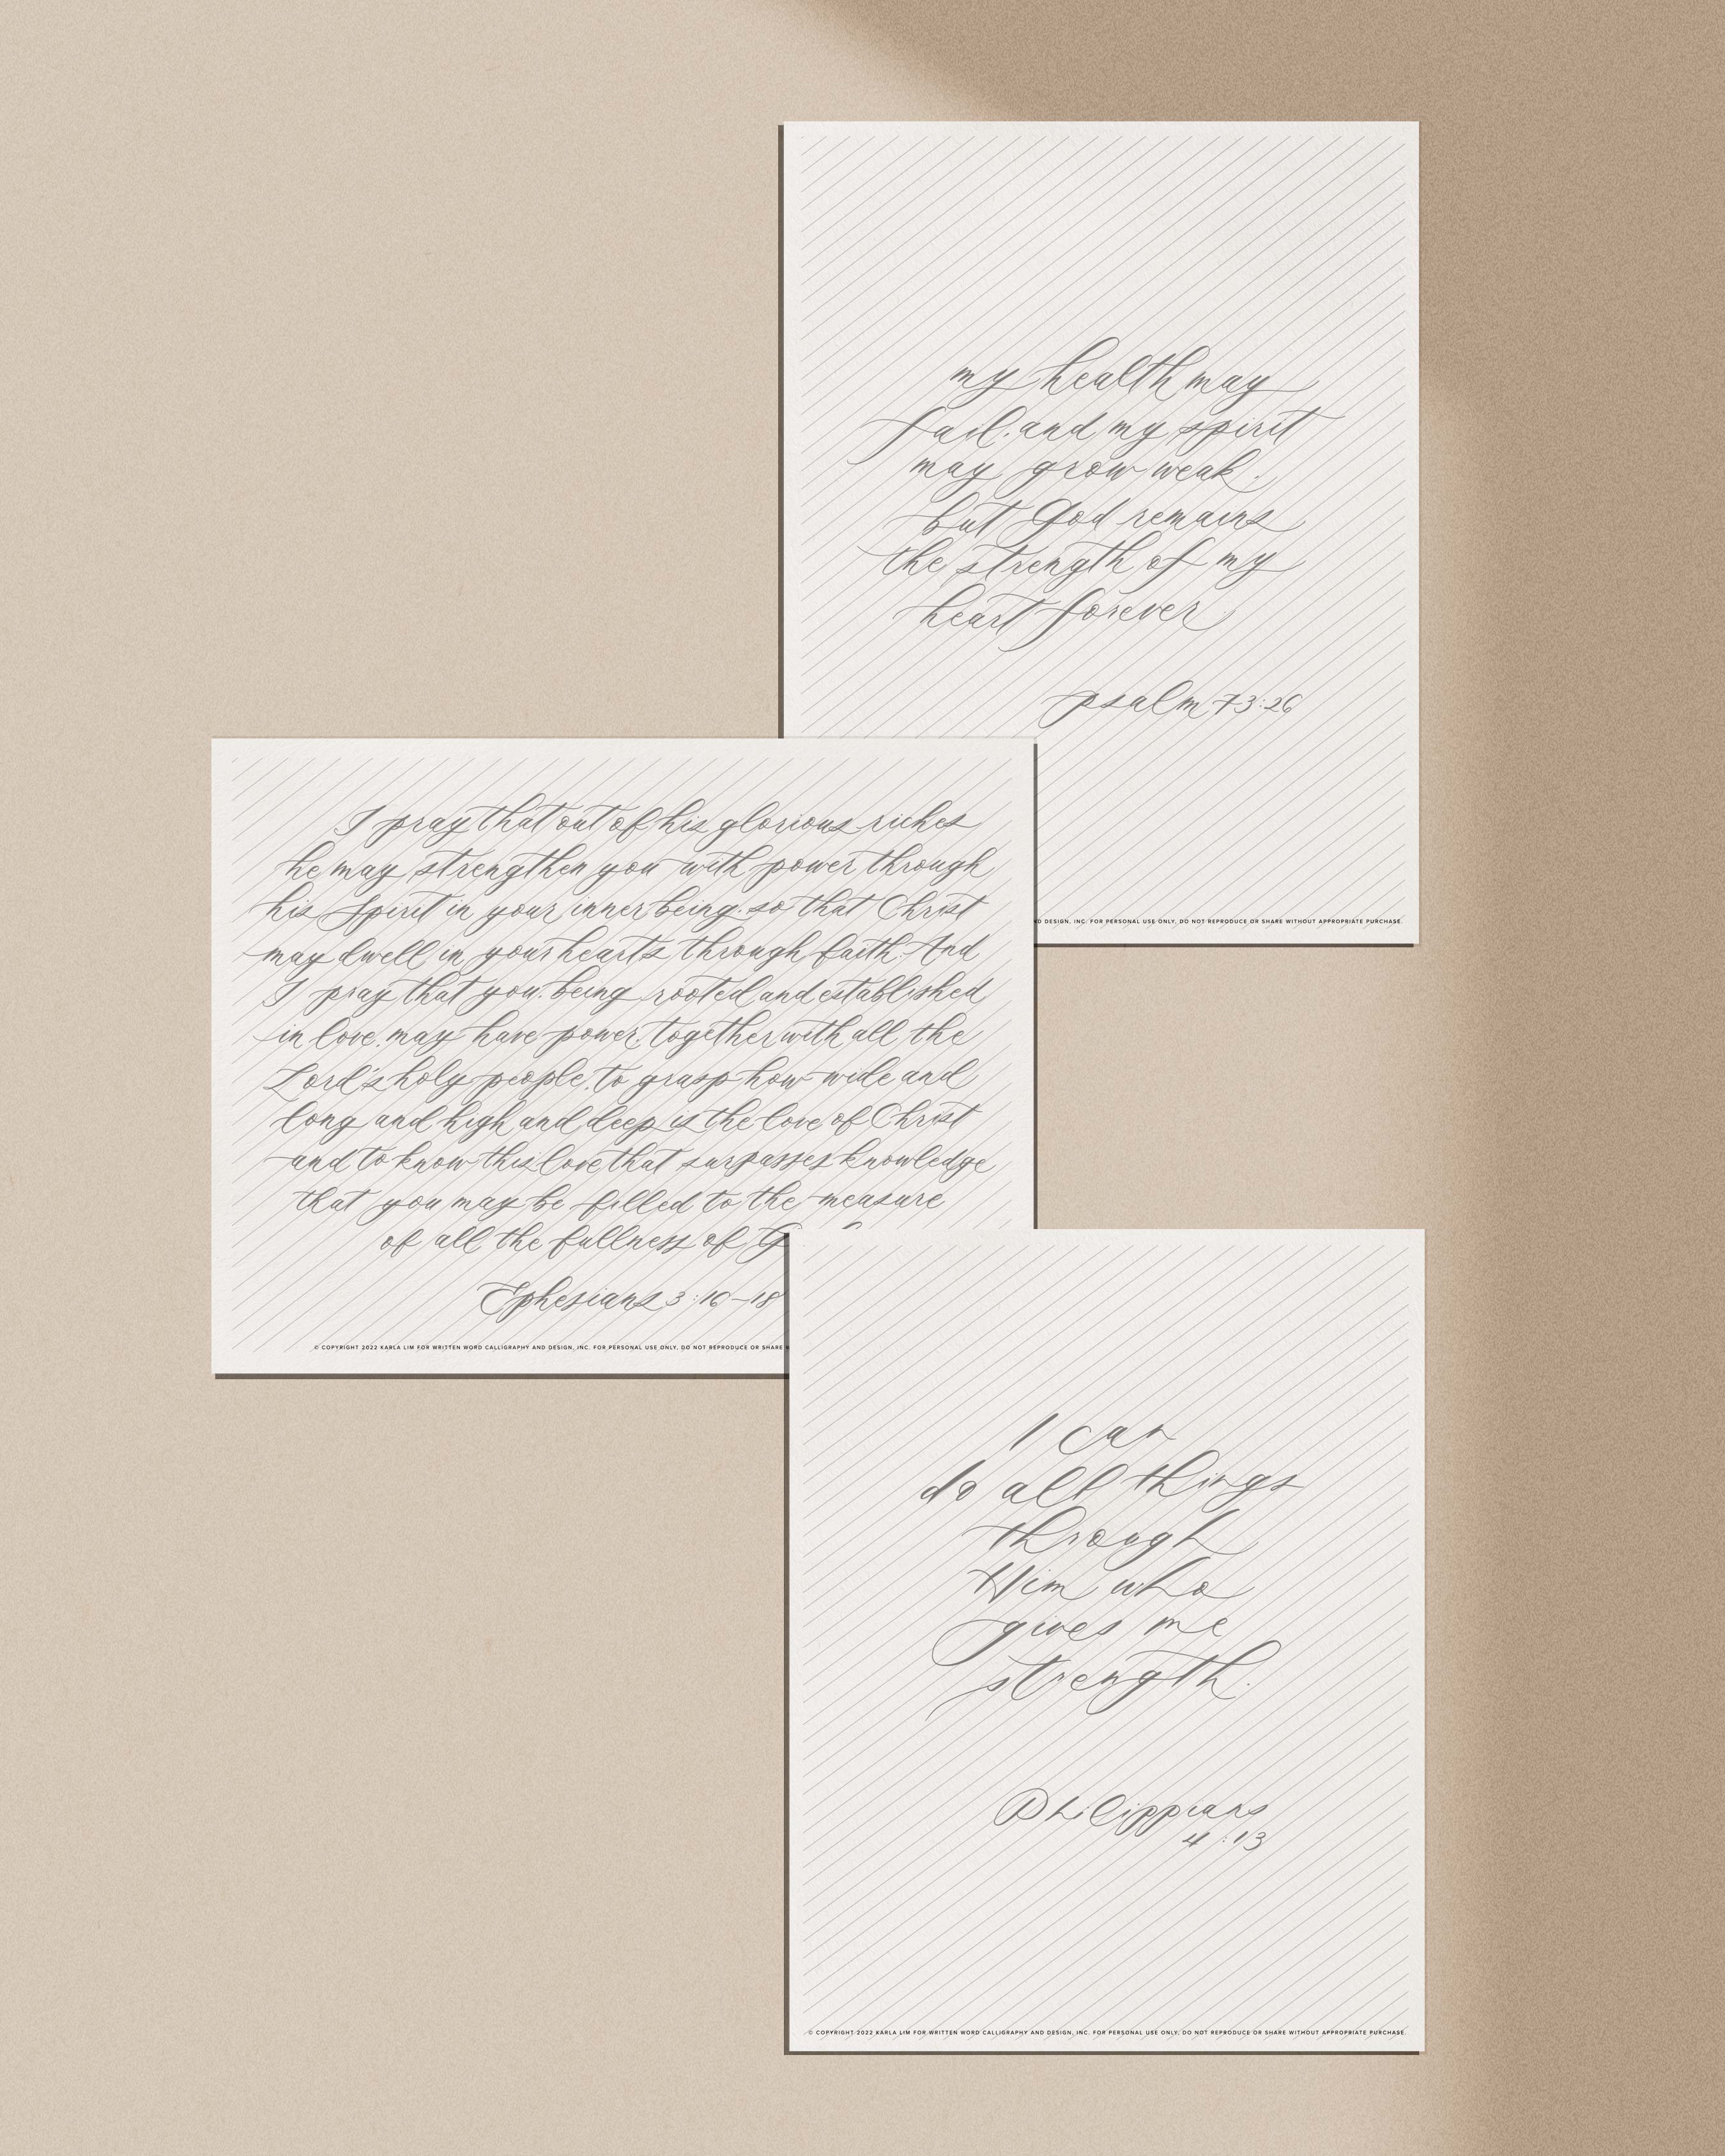 my health may
fail, and my spirit
may grow weak,
but God remains
the strength of my
heart forever.
psalm 73:26
D DESIGN, INC. FOR PERSONAL USE ONLY, DO NOT REPRODUCE OR SHARE WITHOUT APPROPRIATE PURCHASE.
I pray that out of his glorious riches
he may strengthen you with power through
his Spirit in your inner being, so that Christ
may dwell in your hearts through faith. And
I pray that you, being rooted and established
in love, may have power, together with all the
Lord's holy people, to grasp how wide and
long and high and deep is the love of Christ
and to know this love that surpasses knowledge
that you may be filled to the measure
of all the fullness of G
Ephesians 3:16-18
© COPYRIGHT 2022 KARLA LIM FOR WRITTEN WORD CALLIGRAPHY AND DESIGN, INC. FOR PERSONAL USE ONLY, DO NOT REPRODUCE OR SHARE
I can
do all things
through
Him who
gives me
strength.
Philippians
4:13
© COPYRIGHT 2022 KARLA LIM FOR WRITTEN WORD CALLIGRAPHY AND DESIGN, INC. FOR PERSONAL USE ONLY, DO NOT REPRODUCE OR SHARE WITHOUT APPROPRIATE PURCHASE.